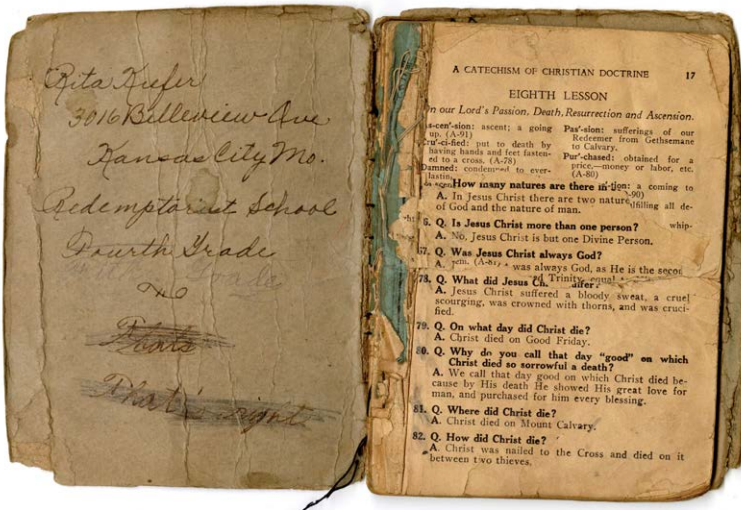 Rita Kiefer
3016 Belleview Ave
Kansas City Mo.
Redemptorist School
Fourth Grade
No
That's right
A CATECHISM OF CHRISTIAN DOCTRINE 17
EIGHTH LESSON
n our Lord's Passion, Death, Resurrection and Ascension.
s-cen'-sion: ascent; a going
up. (A-91)
ru'-ci-fied: put to death by
having hands and feet fasten-
ed to a cross. (A-78)
Damned: condemned to ever-
lastin
Pas'-sion: sufferings of our
Redeemer from Gethsemane
to Calvary.
Pur'-chased: obtained for a
price,—money or labor, etc.
(A-80)
tion: a coming to
-90)
lfilling all de-
whip-
How many natures are there in
A. In Jesus Christ there are two nature
of God and the nature of man.
6. Q. Is Jesus Christ more than one person?
A. No, Jesus Christ is but one Divine Person.
67. Q. Was Jesus Christ always God?
A. was always God, as He is the secon
ed Trinity, equal
em. (A-81)
78. Q. What did Jesus Ch uffer
A. Jesus Christ suffered a bloody sweat, a cruel
scourging, was crowned with thorns, and was cruci-
fied.
79. Q. On what day did Christ die?
A. Christ died on Good Friday.
80. Q. Why do you call that day "good" on which
Christ died so sorrowful a death?
A. We call that day good on which Christ died be-
cause by His death He showed His great love for
man, and purchased for him every blessing.
81. Q. Where did Christ die?
A. Christ died on Mount Calvary.
82. Q. How did Christ die?
A. Christ was nailed to the Cross and died on it
between two thieves.